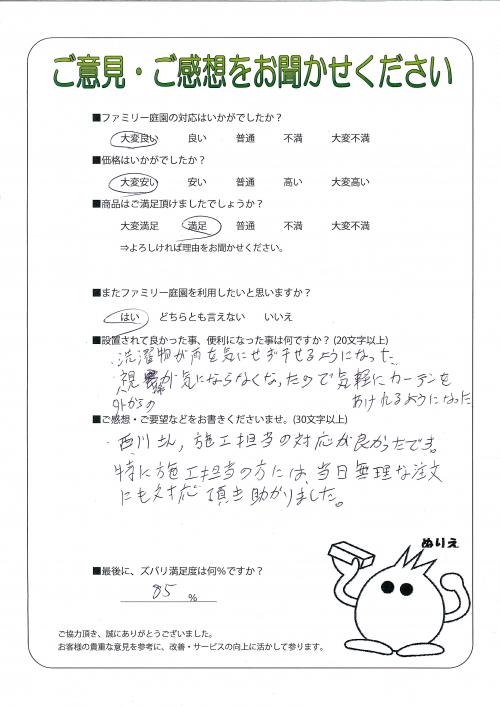 ご意見・ご感想をお聞かせください
■ファミリー庭園の対応はいかがでしたか？
大変良い 良い 普通 不満 大変不満
■価格はいかがでしたか？
大変安い 安い 普通 高い 大変高い
■商品はご満足頂けましたでしょうか？
大変満足 満足 普通 不満 大変不満
⇒よろしければ理由をお聞かせください。
■またファミリー庭園を利用したいと思いますか？
はい どちらとも言えない いいえ
■設置されて良かった事、便利になった事は何ですか？(20文字以上)
・洗濯物が雨を気にせず干せるようになった
・視線が気にならなくなったので気軽にカーテンを
外からの
あけれるようになった
■ご感想・ご要望などをお書きくださいませ。(30文字以上)
・西川さん，施工担当の対応が良かったです。
特に施工担当の方には、当日無理な注文
にも対応頂き助かりました。
ぬりえ
■最後に、ズバリ満足度は何％ですか？
85 ％
ご協力頂き、誠にありがとうございました。
お客様の貴重な意見を参考に、改善・サービスの向上に活かして参ります。